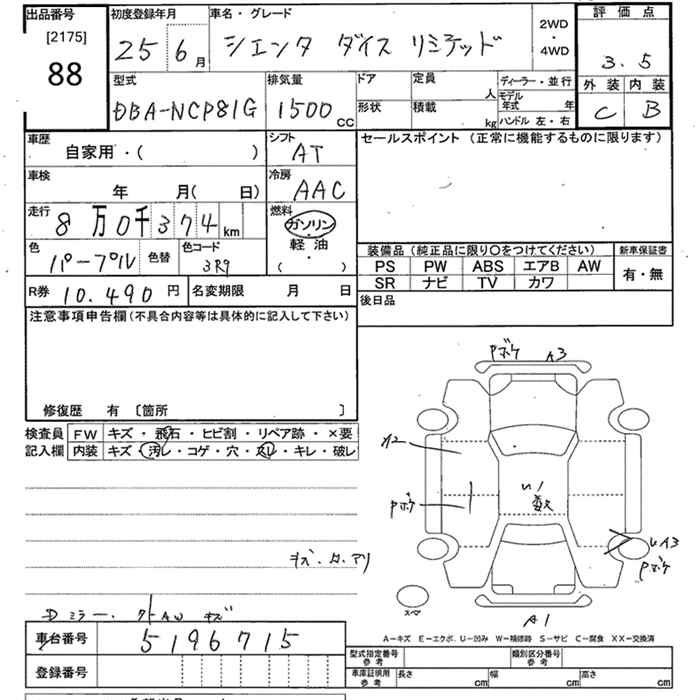 出品番号 初度登録年月 車名・グレード 評価点
[2175] 25 6月 シエンタ ダイス リミテッド 2WD・4WD 3.5
88
型式 排気量 ドア 定員 人 ディーラー・並行 外装 内装
DBA-NCP81G 1500cc 形状 積載 kg モデル年式 年 C B
ハンドル 左・右
車歴 シフト セールスポイント (正常に機能するものに限ります)
自家用・( ) AT
車検 冷房
年 月( 日) AAC
走行 燃料
8万0千374km ガソリン・軽油
( )
色 色替 色コード 装備品(純正品に限り○をつけてください) 新車保証書
パープル 3R9 PS PW ABS エアB AW 有・無
SR ナビ TV カワ
R券 10.490円 名変期限 月 日 後日品
注意事項申告欄(不具合内容等は具体的に記入して下さい)
修復歴 有 〔箇所 〕
Pボケ A3
検査員 FW キズ・飛石・ヒビ割・リペア跡・×要
記入欄 内装 キズ・汚レ・コゲ・穴・スレ・キレ・破レ
A2
Pボケ
U1
数
UA3
Pボケ
スペア
A1
Dミラー. AW キズ
A-キズ E-エクボ U-凹み W-補修跡 S-サビ C-腐食 XX-交換済
車台番号 5196715
登録番号
型式指定番号 参考 類別区分番号 参考
車庫証明用 参考 長さ cm 幅 cm 高さ cm